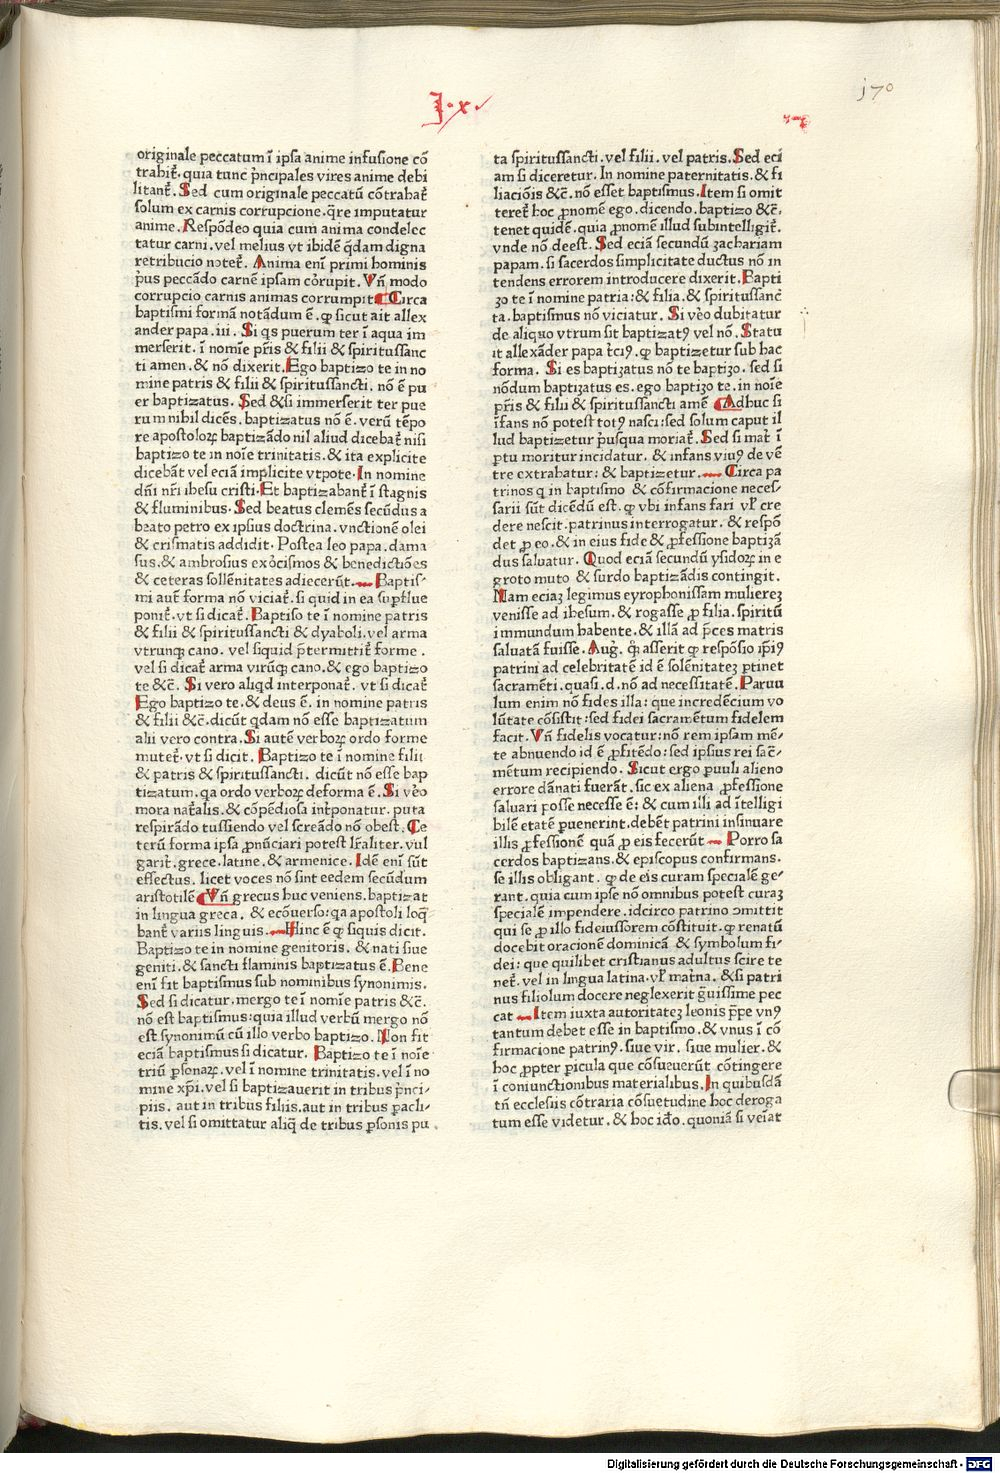 J·x·
170
originale peccatum ī ipsa anime infusione cō
trahit᷑. quia tunc p̄ncipales vires anime debi
litant᷑. Sed cum originale peccatū cōtrahat᷑
solum ex carnis corrupcione. q̄re imputatur
anime. Respōdeo quia cum anima condelec
tatur carni. vel melius vt ibidē q̄dam digna
retribucio notet᷑. Anima eni primi hominis
p̄us peccādo carnē ipsam corrupit. Vn̄ modo
corrupcio carnis animas corrumpit Circa
baptismi formā notādum ē. ꝙ sicut ait allex
ander papa .iii. Si qs puerum ter ī aqua im
merserit. ī nomīe pr̄is & filii & spiritussanc
ti amen. & nō dixerit. Ego baptizo te in no
mine patris & filii & spiritussancti. nō ē pu
er baptizatus. Sed &si immerserit ter pue
rum nihil dicēs. baptizatus nō ē. verū tēpo
re apostoloꝝ baptizādo nil aliud dicebat᷑ nisi
baptizo te in noīe trinitatis. & ita explicite
dicebāt vel eciā implicite vtpote. In nomine
dn̄i nr̄i ihesu cristi. Et baptizabant᷑ ī stagnis
& fluminibus. Sed beatus clemēs secūdus a
beato petro ex ipsius doctrina. vnctionē olei
& crismatis addidit. Postea leo papa. dama
sus. & ambrosius exorcismos & benedictiōes
& ceteras sollēnitates adiecerūt. Baptis⸗
mi aut̄ forma nō viciat᷑. si quid in ea suꝑflue
ponit᷑. vt si dicat᷑. Baptiso te ī nomine patris
& filii & spiritussancti & dyaboli. vel arma
vtrunqꝫ cano. vel siquid p̄termittit᷑ forme.
vel si dicat᷑ arma virūqꝫ cano. & ego baptizo
te &c̄. Si vero aliqd interponat᷑. vt si dicat᷑
Ego baptizo te. & deus ē. in nomine patris
& filii &c̄. dicūt qdam nō esse baptizatum
alii vero contra. Si autē verboꝝ ordo forme
mutet᷑. vt si dicit. Baptizo te ī nomine filii
& patris & spiritussancti. dicūt nō esse bap
tizatum. qa ordo verboꝝ deforma ē. Si v̄o
mora nat᷑alis. & cōpēdiosa int᷑ponatur. puta
respirādo tussiendo vel screādo nō obest. Ce
terū forma ipsa ꝓnūciari potest lr̄aliter. vul
garit᷑. grece. latine. & armenice. Idē eni sūt
effectus. licet voces nō sint eedem secūdum
aristotilē Vn̄ grecus huc veniens. baptizat
in lingua greca. & ecōuerso: qa apostoli loq̄
bant᷑ variis linguis. Hinc ē ꝙ siquis dicit.
Baptizo te in nomine genitoris. & nati siue
geniti. & sancti flaminis baptizatus ē. Bene
eni fit baptismus sub nominibus synonimis.
Sed si dicatur. mergo te ī nomīe patris &c̄.
nō est baptismus: quia illud verbū mergo nō
est synonimū cū illo verbo baptizo. Non fit
eciā baptismus si dicatur. Baptizo te ī noīe
triū ꝑsonaꝝ. vel ī nomine trinitatis. vel ī no
mine xp̄i. vel si baptizauerit in tribus p̄nci⸗
piis. aut in tribus filiis. aut in tribus ꝑacli⸗
tis. vel si omittatur aliq̄ de tribus ꝑsonis pu
ta spiritussancti. vel filii. vel patris. Sed eci
am si diceretur. In nomine paternitatis. & fi
liaciōis &c̄. nō esset baptismus. Item si omit
teret᷑ hoc ꝓnomē ego. dicendo. baptizo &c̄.
tenet quidē. quia ꝓnomē illud subintelligit᷑.
vnde nō deest. Sed eciā secundū zachariam
papam. si sacerdos simplicitate ductus nō in
tendens errorem introducere dixerit. Bapti
zo te ī nomine patria: & filia. & spiritussanc̄
ta. baptismus nō viciatur. Si v̄o dubitatur
de aliquo vtrum sit baptizatꝰ vel nō. Statu
it allexāder papa t̄ciꝰ. ꝙ baptizetur sub hac
forma. Si es baptizatus nō te baptizo. sed si
nōdum baptizatus es. ego baptizo te. in noīe
pr̄is & filii & spiritussancti amē Adhuc si
īfans nō potest totꝰ nasci: sed solum caput il
lud baptizetur p̄usqua moriat᷑. Sed si mat᷑ ī
ꝑtu moritur incidatur. & infans viuꝰ de vē
tre extrahatur: & baptizetur. Circa pa
trinos q in baptismo & cōfirmacione neces⸗
sarii sūt dicēdū est. ꝙ vbi infans fari vl̓ cre
dere nescit. patrinus interrogatur. & respō
det ꝓ eo. & in eius fide & ꝓfessione baptizā
dus saluatur. Quod eciā secundū ysidoꝝ in e
groto muto & surdo baptizādis contingit.
Nam eciaꝫ legimus eyrophonissam muliereꝫ
venisse ad ihesum. & rogasse ꝓ filia. spiritū
immundum habente. & illā ad p̄ces matris
saluatā fuisse. Aug᷑. qͥ asserit ꝙ respōsio ip̄iꝰ
patrini ad celebritatē id ē solēnitateꝫ ꝑtinet
sacramēti. quasi .d. nō ad necessitatē. Paruu
lum enim nō fides illa: que incredēcium vo
lūtate cōsistit: sed fidei sacramētum fidelem
facit. Vn̄ fidelis vocatur: nō rem ipsam mē⸗
te abnuendo id ē ꝓfitēdo: sed ipsius rei sac̄⸗
mētum recipiendo. Sicut ergo ꝑuuli alieno
errore dānati fuerāt. sic ex aliena ꝓfessione
saluari posse necesse ē: & cum illi ad ītelligi
bilē etatē ꝑuenerint. debēt patrini insinuare
illis ꝓfessionē quā ꝓ eis fecerūt Porro sa
cerdos baptizans. & episcopus confirmans.
se illis obligant. ꝙ de eis curam specialē ge⸗
rant. quia cum ipse nō omnibus potest curaꝫ
specialē impendere. idcirco patrino ɔmittit
qui se ꝓ illo fideiussorem cōstituit. ꝙ renatū
docebit oracionē dominicā & symbolum fi⸗
dei: que quilibet cristianus adultus scire te
net᷑. vel in lingua latina. vl̓ mat᷑na. &si patri
nus filiolum docere neglexerit g̃uissime pec
cat Item iuxta autoritateꝫ leonis pp̄e vnꝰ
tantum debet esse in baptismo. & vnus ī cō
firmacione patrinꝰ. siue vir. siue mulier. &
hoc ꝓpter ꝑicula que cōsueuerūt cōtingere
ī coniunctionibus materialibus. In quibusdā
tn̄ ecclesiis cōtraria cōsuetudine hoc deroga
tum esse videtur. & hoc idō. quoniā si veīat
Digitalisierung gefördert durch die Deutsche Forschungsgemeinschaft - DFG